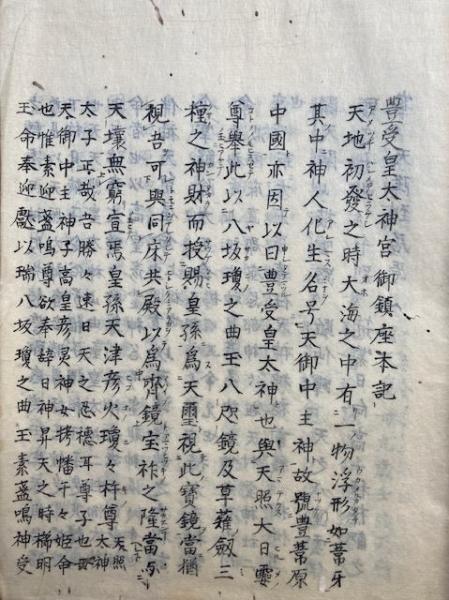 豊受皇太神宮御鎮座本記
天地初發之時大海之中有一物浮形如葦牙
其中神人化生名号天御中主神故號豊葦原
中國亦因以曰豊受皇太神也與天照大日孁
尊舉此以八坂瓊之曲玉八咫鏡及草薙劔三
種之神財而授賜皇孫為天璽視此寳鏡當猶
視吾可與同床共殿以為齊鏡宝祚之隆當与
天壤無窮宣焉皇孫天津彦火瓊々杵尊天照太神
太子正哉吾勝々速日天之忍穂耳尊子也母
天御中主神子高皇産灵神女栲幡千々姫命
也惟素盞嗚尊欲奉辞日神昇天之時櫛明
玉命奉迎獻以瑞八坂瓊之曲玉素盞嗚神受